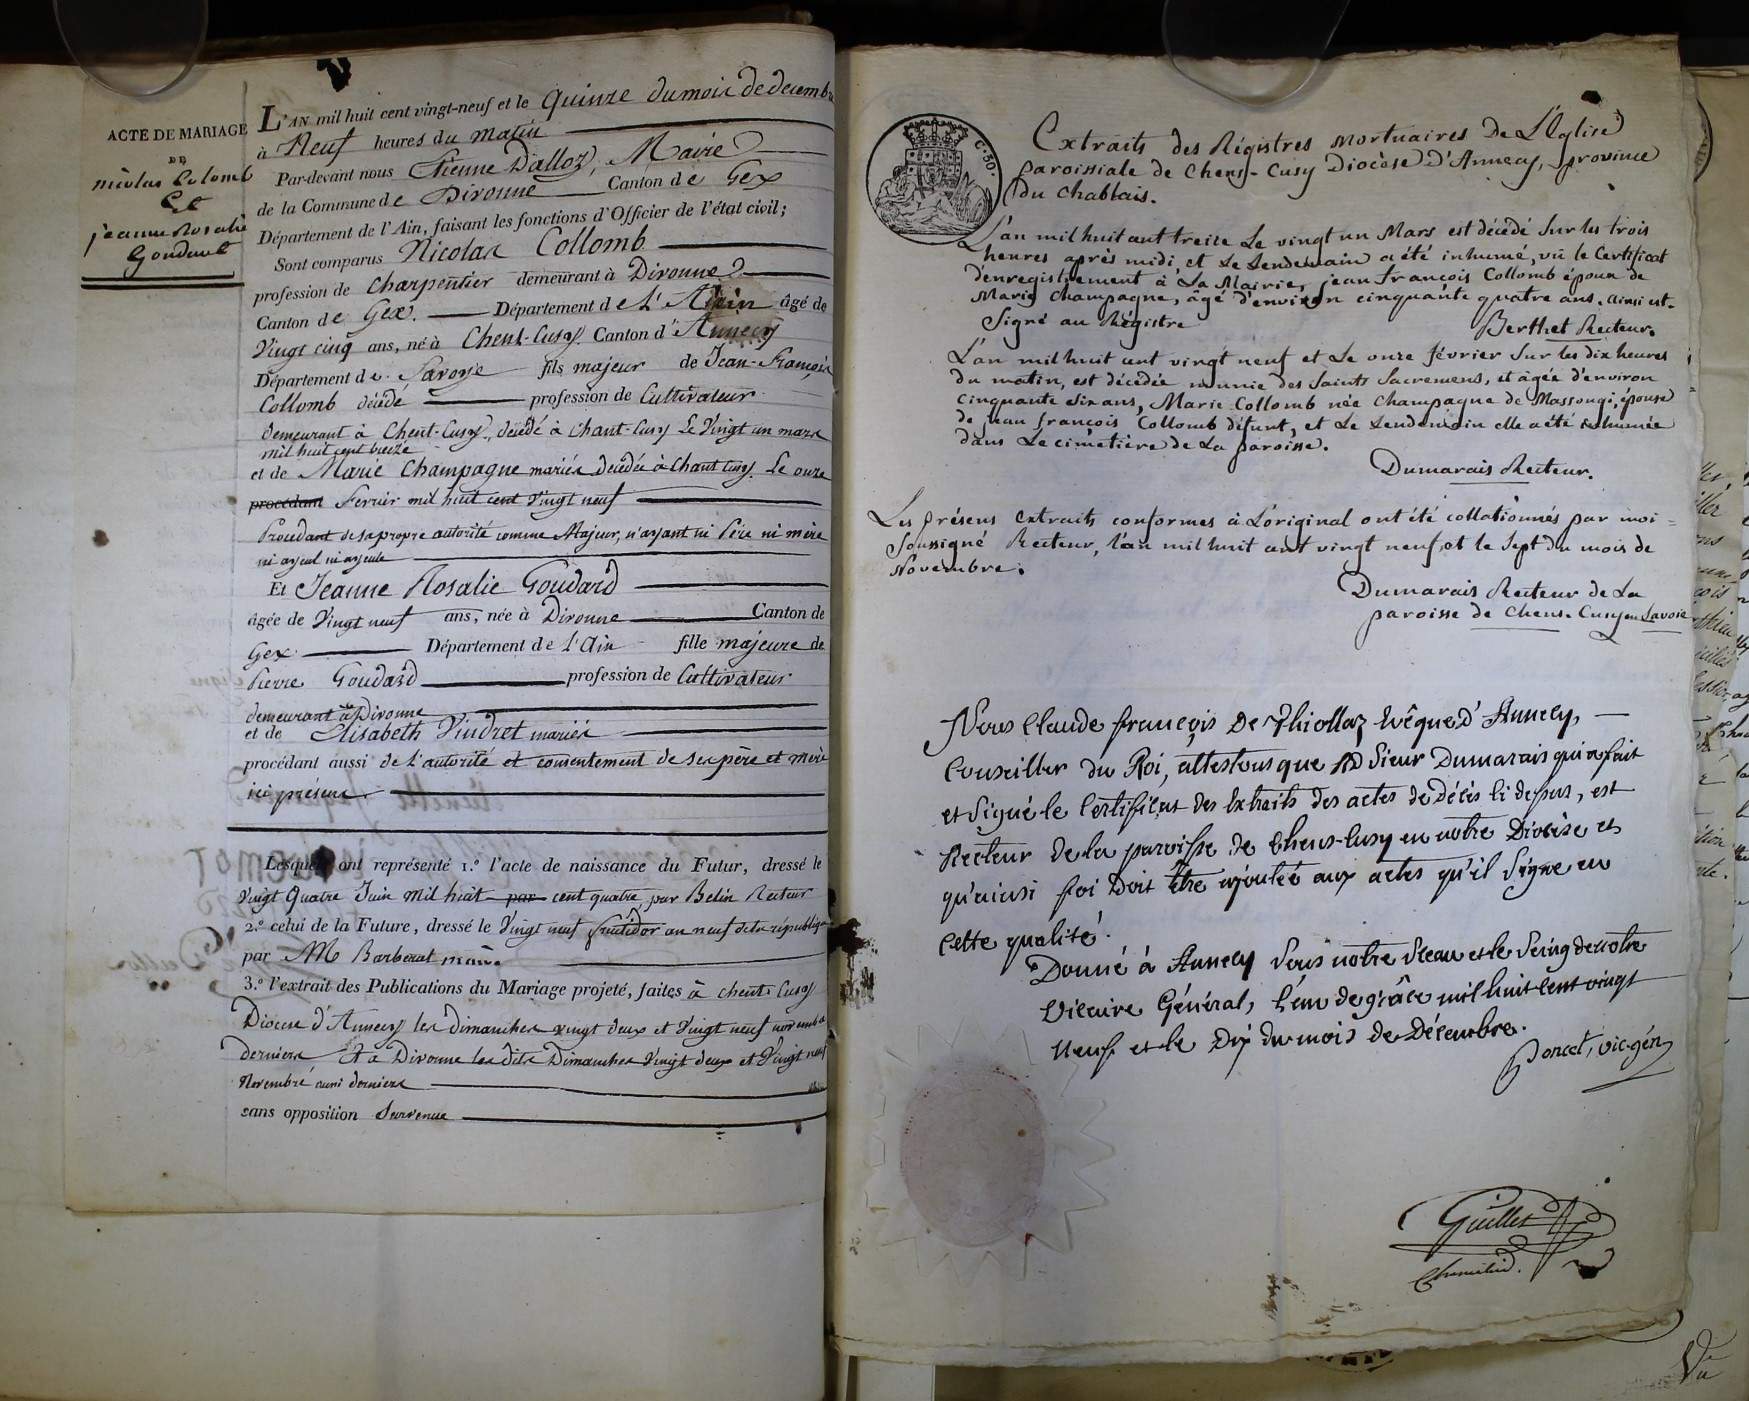 ACTE DE MARIAGE
DE
nicolas Colomb
Et
jeanne Rosalie
Goudard
L'AN mil huit cent vingt-neuf et le Quinze du mois de decembre
à Neuf heures du matin
Par-devant nous Etienne Dalloz, Maire
de la Commune de Divonne Canton de Gex
Département de l'Ain, faisant les fonctions d'Officier de l'état civil;
Sont comparus Nicolas Collomb
profession de Charpentier demeurant à Divonne
Canton de Gex. Département de l'Ain âgé de
Vingt cinq ans, né à Chent-Cusy Canton d'Annecy
Département de Savoye fils majeur de Jean-François
Collomb décédé profession de Cultivateur
demeurant à Chent-Cusy, décédé à Chant-Cusy Le Vingt un mars
mil huit cent treize
et de Marie Champagne mariés decédée à Chant Cusy. Le onze
procédant Fevrier mil huit cent Vingt neuf
Procedant de sa propre autorité comme Majeur, n'ayant ni Père ni mère
ni ayeul ni ayeule
Et Jeanne Rosalie Goudard
âgée de Vingt neuf ans, née à Divonne Canton de
Gex Département de l'Ain fille majeure de
Pierre Goudard profession de Cultivateur
demeurant à Divonne
et de Elisabeth Vindret mariés
procédant aussi de l'autorité et consentement de ses père et mère
ici présens
Lesquels ont représenté 1.º l'acte de naissance du Futur, dressé le
Vingt Quatre Juin mil huit par cent quatre, par Belin Recteur
2.º celui de la Future, dressé le Vingt neuf fructidor an neuf de la république
par M Barberat maire
3.º l'extrait des Publications du Mariage projeté, faites à chent Cusy
Diocese d'Annecy les dimanches vingt deux et Vingt neuf novembre
derniers et a Divonne les dits Dimanches Vingt deux et Vingt neuf
Novembre aussi derniers
sans opposition Survenue
C. 50.
Extraits des Régistres mortuaires de L'Eglise
paroissiale de Chens-Cusy Diocèse D'Annecy, province
du Chablais.
L'an mil huit cent treize Le vingt un Mars est décédé Sur les trois
heures après midi, et Le Lendemain a été inhumé, vû le Certificat
d'enregistrement à La Mairie, jean françois Collomb époux de
Marie Champagne, âgé d'environ cinquante quatre ans. Ainsi est-
Signé au Régistre Berthet Recteur.
L'an mil huit cent vingt neuf et Le onze février Sur les dix heures
du matin, est décédée munie des Saints Sacremens, et âgée d'environ
cinquante Six ans, Marie Collomb née Champagne de Massongi, épouse
de jean françois Collomb défunt, et Le Lendemain elle a été inhumée
dans Le cimetière de La paroisse.
Dumarais Recteur.
Les présens extraits conformes à L'original ont été collationnés par moi
Soussigné Recteur, l'an mil huit cent vingt neuf, et le Sept du mois de
Novembre.
Dumarais Recteur de La
paroisse de Chens-Cusy en Savoie
Nous Claude françois De Thiollaz Evêque D'Annecy,
Conseiller du Roi, attestons que Rd Sieur Dumarais qui a fait
et Signé le Certificat des Extraits des actes de Décès Ci dessus, est
Recteur de la paroisse de Chens-Cusy en notre Diocèse et
qu'ainsi foi Doit être ajoutée aux actes qu'il Signe en
Cette qualité.
Donné à Annecy Sous notre Sceau et le Seing de notre
Vicaire Général, l'an de grâce mil huit cent vingt
Neuf et le Dix du mois de Décembre.
Poncet, vic. gén
Guillet
Vu